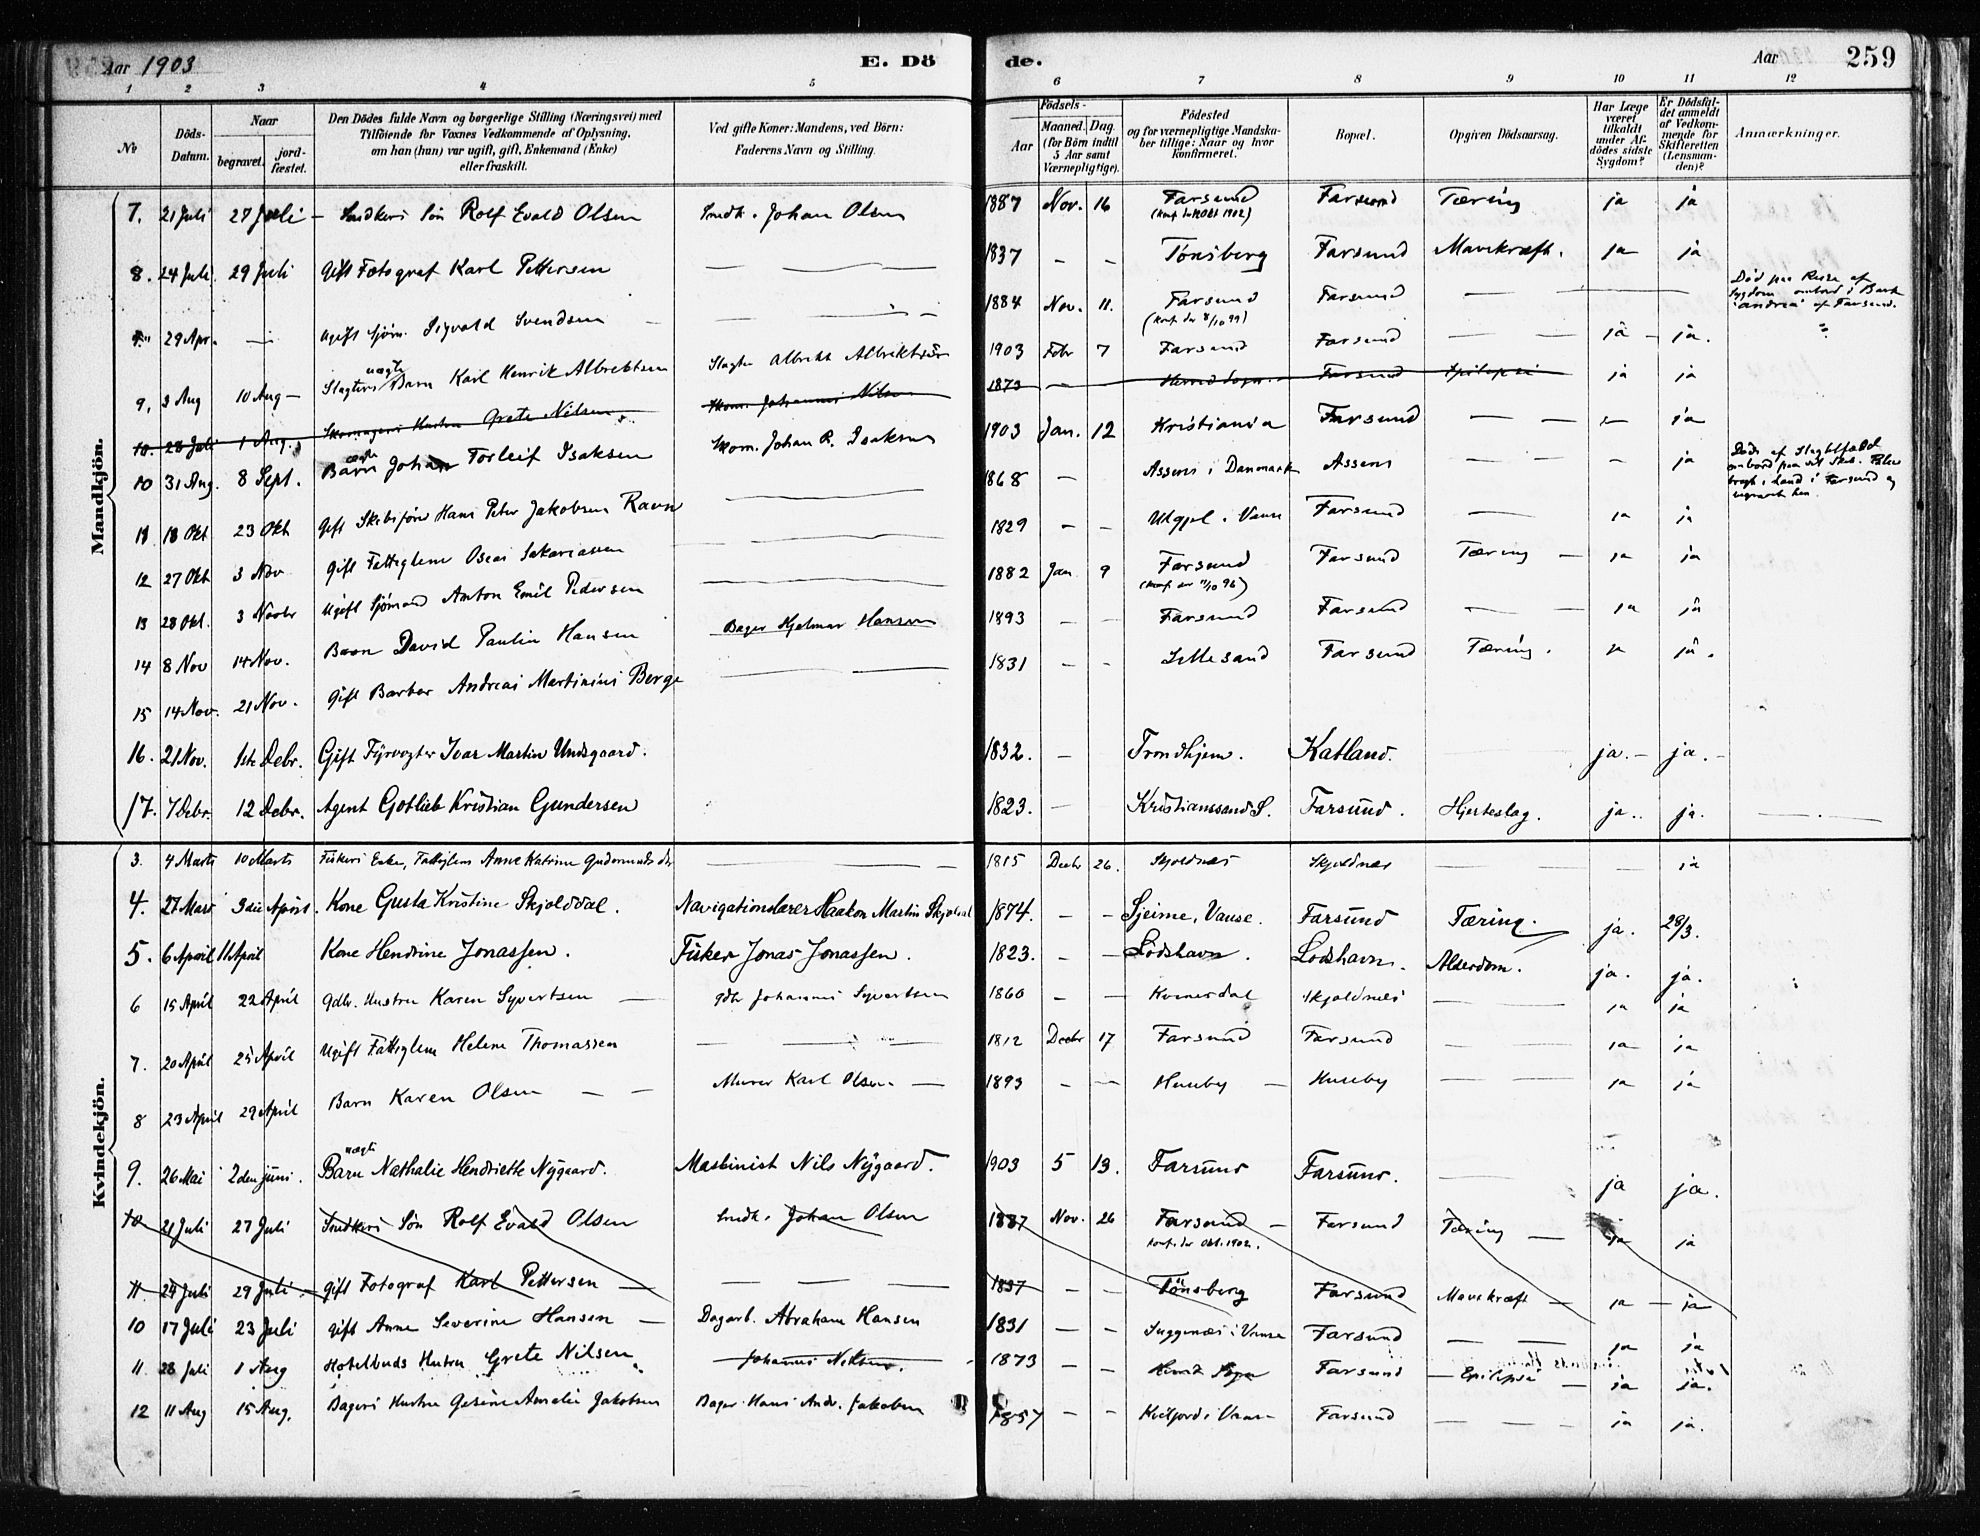 Aar 1903 E. Dö de. Aar 259
1 2 3 4 5 6 7 8 9 10 11 12
No Döds-Datum. Naar begravet. jord-fæstet. Den Dödes fulde Navn og borgerlige Stilling (Næringsvei) med Tilföiende for Voxnes Vedkommende af Oplysning, om han (hun) var ugift, gift, Enkemand (Enke) eller fraskilt. Ved gifte Koner: Mandens, ved Börn: Faderens Navn og Stilling. Födsels- Aar Maaned. Dag. (for Börn indtil 5 Aar samt Værnepligtige). Födested og for værnepligtige Mandska-ber tillige: Naar og hvor Konfirmeret. Bopæl. Opgiven Dödsaarsag. Har Læge været tilkaldt under Af-dödes sidste Sygdom? Er Dödsfal-det anmeldt af Vedkom-mende for Skifteretten (Lensman-den)? Anmærkninger.
Mandkjön.
7. 21 Juli 27 Juli – Snedkers Sön Rolf Evald Olsen Snedk. Johan Olsen 1887 Nov. 16 Farsund Farsund Tæring ja ja
8. 24 Juli 29 Juli Gift Fotograf Karl Pettersen — 1837 – – Tönsberg Farsund Mavekræft. ja ja
29 Apr. — Ugift Sjöm. Sigvald Svendsen — 1884 Nov. 11. Farsund (konf. der 8/10 99) Farsund — Död paa Reise af Sygdom ombord i Bark "Andrea" af Farsund.
9. 3 Aug 10 Aug – Slagters uægte Barn Karl Henrik Albrektsen Slagter Albrekt Albrektsen 1903 Febr 7 Farsund Farsund — ja – ja.
10. 28 Juli 1 Aug. Skomagers Hustru Grete Nilsen. Skom. Johannes Nilsen 1873 — Farsund Epilepsi ja ja
10 31 Aug. 8 Sept. Barn Johan Torleif Isaksen Skom. Johan R. Isaksen 1903 Jan. 12 Kristiania Farsund — – ja
11 18 Okt 23 Okt Gift Skibsförer Hans Peter Jakobsen Ravn — 1868 – Assens i Danmark Assens — – ja
12 27 Okt 3 Nov Gift Fattiglem Oscar Sakariassen — 1829 – – Vanse Farsund — ja ja
13 28 Okt. 3 Novbr Ugift Sjömand Anton Emil Pedersen — 1882 Jan 9 Farsund (konf. der 11/10 96) Farsund Tæring – ja ja
14 8 Nov 14 Nov. Barn David Paulin Hansen Bager Hjelmar Hansen 1893 – – Farsund Farsund — ja ja
15 14 Nov. 21 Nov. Gift Barber Andreas Martinius Berge — 1831 – – Lillesand Farsund Tæring. ja ja.
16. 21 Nov. 1ste Debr. Gift Fyrvogter Ivar Martin Undsgaard. 1832. – Trondhjem. Katland. ja. – ja. –
17. 7 Debr. 12 Debr. Agent Gotlieb Kristian Gundersen 1823. – Kristianssand S. Farsund. Hjerteslag. ja.. ja. —
Kvindekjön.
3. 4 Marts 10 Marts Fiskers Enke, Fattiglem Anne Katrine Gudmunds dtr — 1815 Decbr 26. Skjoldnæs Skjoldnæs — ja
4. 27 Mars 3die April. Kone Gusta Kristine Skjolddal. Navigationslærer Haakon Martin Skjoldal 1874. – – Vanse. Farsund Tæring. ja. 28/3.
5. 6 April 11 April Kone Hendrine Jonassen. Fisker Jonas Jonassen. 1823. – – Lodshavn. Lodshavn. Alderdom. ja. ja.
6 15 April 22 April Gdbr. Hustru Karen Syvertsen — Gdb Johannes Syvertsen 1860 – – Kvinesdal Skjoldnæs — ja ja
7. 20 April 25 April Ugift Fattiglem Helene Thomassen — 1812 Decbr 17 Farsund Farsund — ja ja
8 23 April 29 April Barn Karen Olsen – – Murer Karl Olsen — 1893 – – Huseby – Huseby — ja ja
9. 26 Mai 2den juni. uægte Barn Nathalie Hendriette Nÿgaard. Maskinist Nils Nÿgaard. 1903 5 13. Farsund Farsund. — ja ja.
10 21 Juli 27 Juli Snedkers Sön Rolf Evald Olsen Snedk. Johan Olsen 1887 Nov. 26 Farsund – konf. der Okt. 1902. Farsund Tæring — ja ja
11. 24 Juli 29 Juli – Gift Fotograf Karl Pettersen — 1837 – – Tönsberg Farsund Mavekræft – ja – ja
10 17 Juli 23 Juli Gift Anne Severine Hansen — Dagarb. Abraham Hansen 1831 – – i Vanse Farsund — ja ja
11. 28 Juli 1 Aug Hotelbuds Hustru Grete Nilsen Johannes Nilsen. 1873 – – Farsund – Epilepsi – ja ja.
12 11 Aug 15 Aug. Bagers Hustru Gesine Amalie Jakobsen Bager Hans Andr. Jakobsen 1857 – – i Vanse Farsund — ja ja.